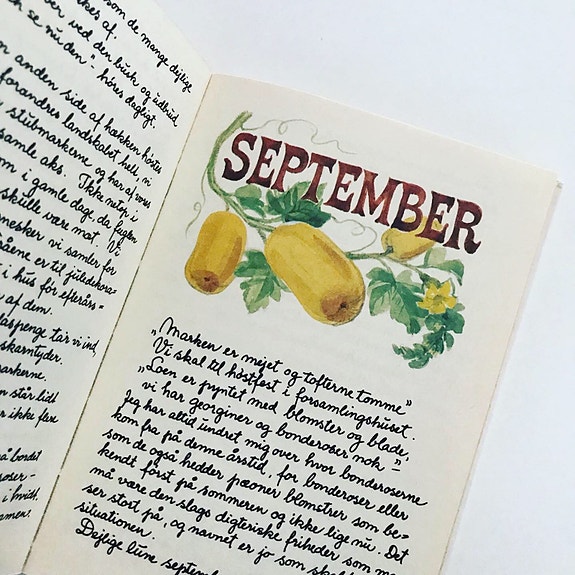 som de mange dejlige
ved den busk og udbrød
se nu den"- høres dagligt.
anden side af hækken høstes
forandres landskabet helt, vi
stubmarkerne og har af vores
samle aks. Ikke netop i
i gamle dage, da fuglen
skulle være mat. Vi
vi samler for
er til juledekora-
i hus før efterårs-
af dem.
tar vi ind,
skarntyder.
står lidt
ikke flere
bordet
i hvidt.
SEPTEMBER
„Marken er mejet og tofterne tomme"
Vi skal til høstfest i forsamlingshuset.
„Loen er pyntet med blomster og blade,
vi har georginer og bonderoser nok –"
Jeg har altid undret mig over hvor bonderoserne
kom fra på denne årstid, for bonderoser eller
som de også hedder pæoner blomstrer som be-
kendt først på sommeren og ikke lige nu. Det
må være den slags digteriske friheder som man
ser stort på, og navnet er jo som skabt
situationen.
Dejlige lune septem